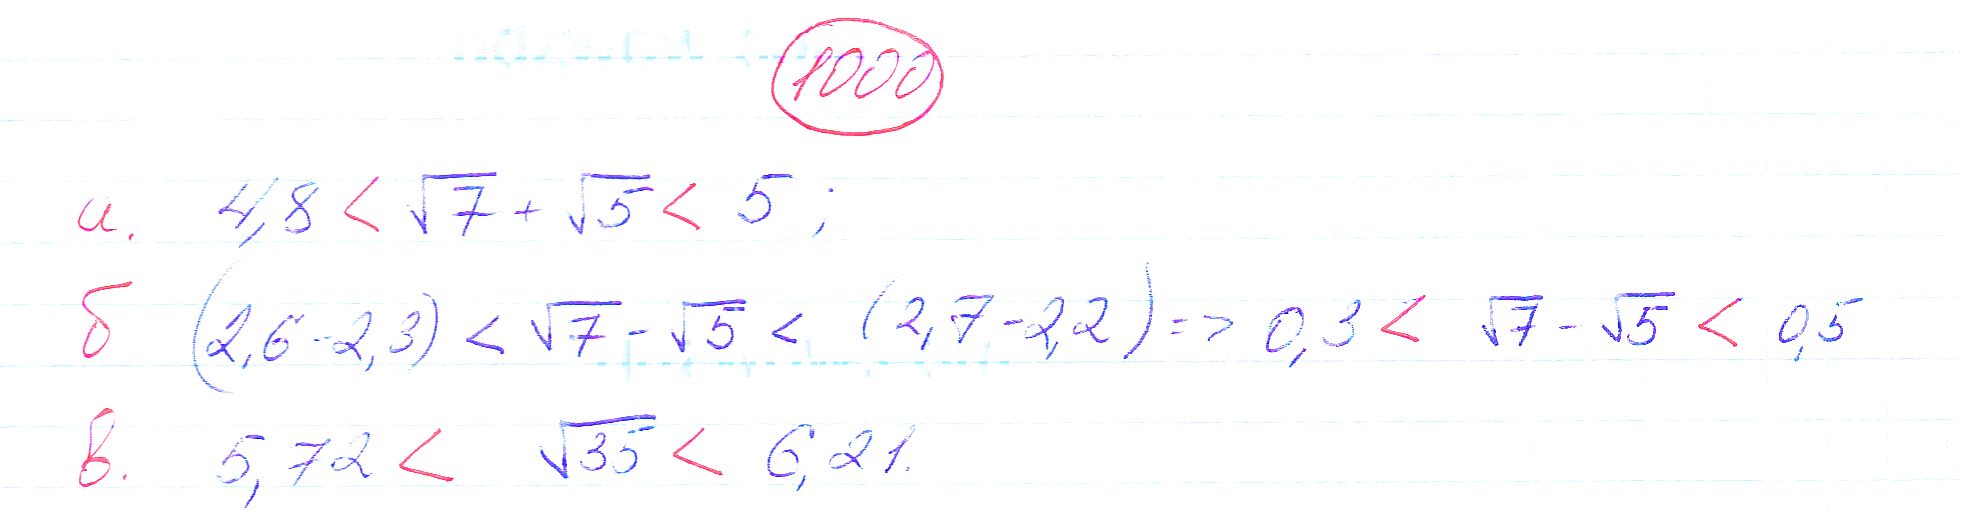 1000
а. 4,8 < √7 + √5 < 5 ;
б (2,6 - 2,3) < √7 - √5 < (2,7 - 2,2) => 0,3 < √7 - √5 < 0,5
в. 5,72 < √35 < 6,21.